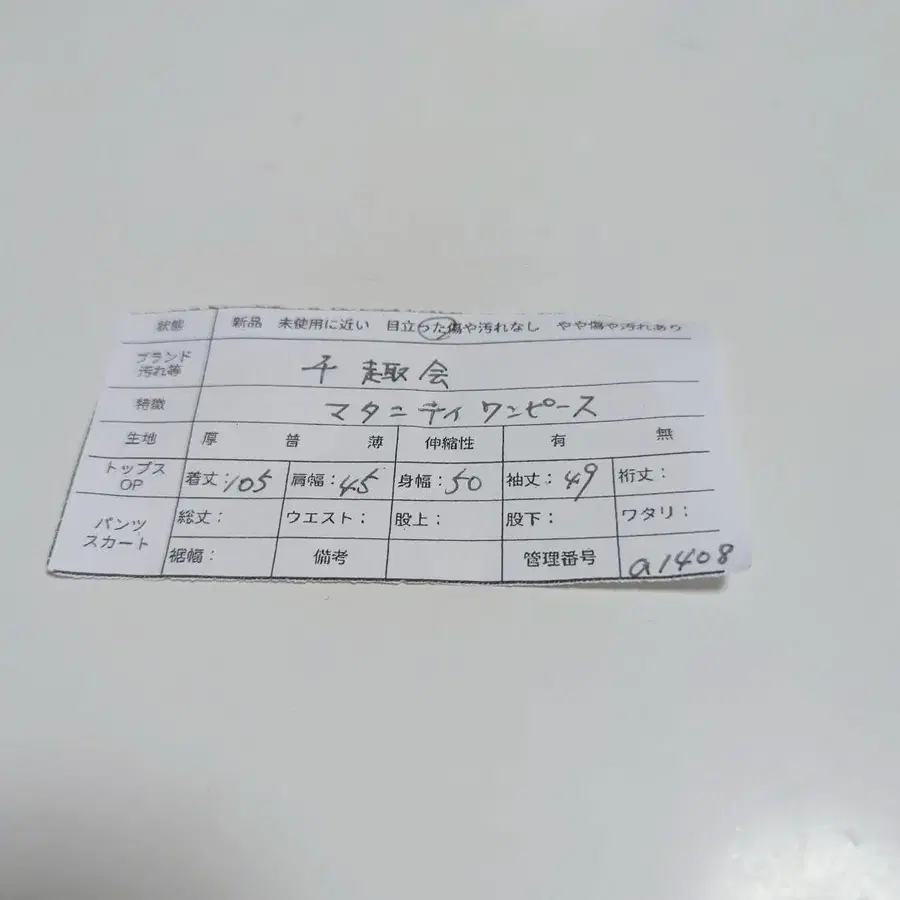 状態 新品 未使用に近い 目立った傷や汚れなし やや傷や汚れあり
ブランド 汚れ等 千趣会
特徴 マタニティワンピース
生地 厚 普 薄 伸縮性 有 無
トップス OP 着丈:105 肩幅:45 身幅:50 袖丈:49 裄丈:
パンツ スカート 総丈: ウエスト: 股上: 股下: ワタリ:
裾幅: 備考 管理番号 a1408